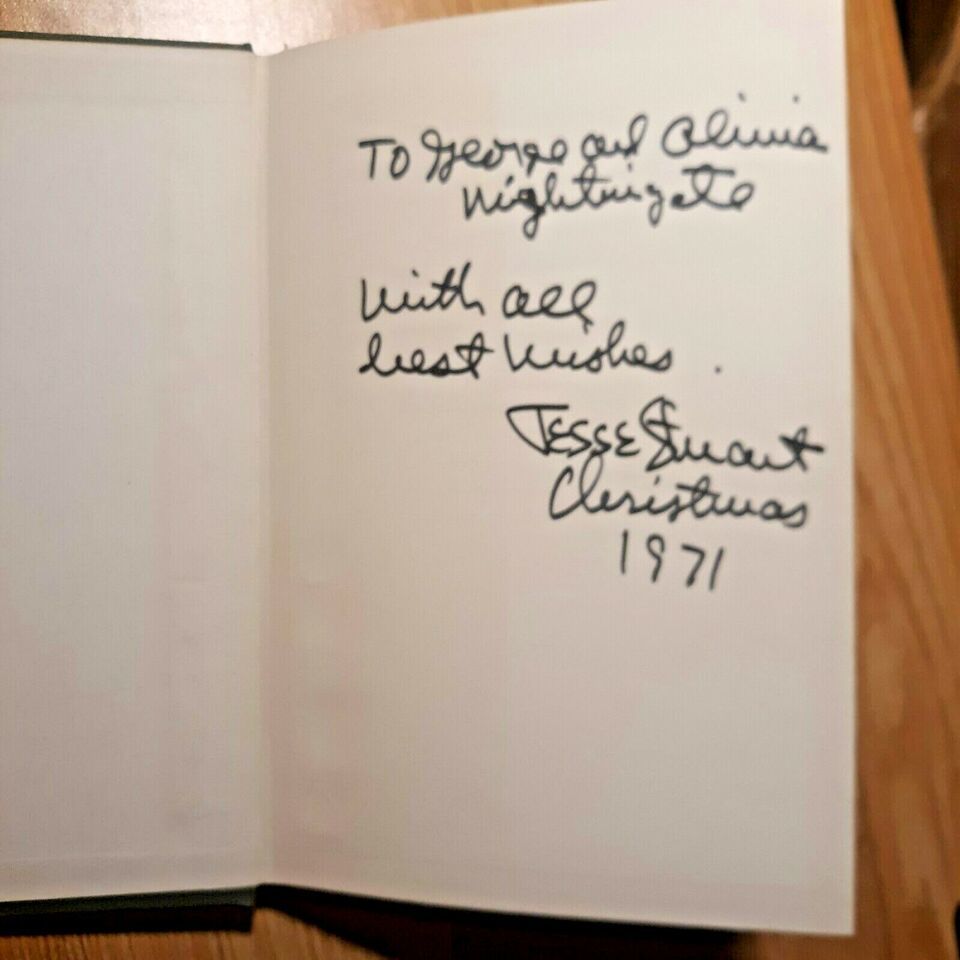 To George and Olivia
Nightingate
With all
best wishes.
Jesse Stuart
Christmas
1971